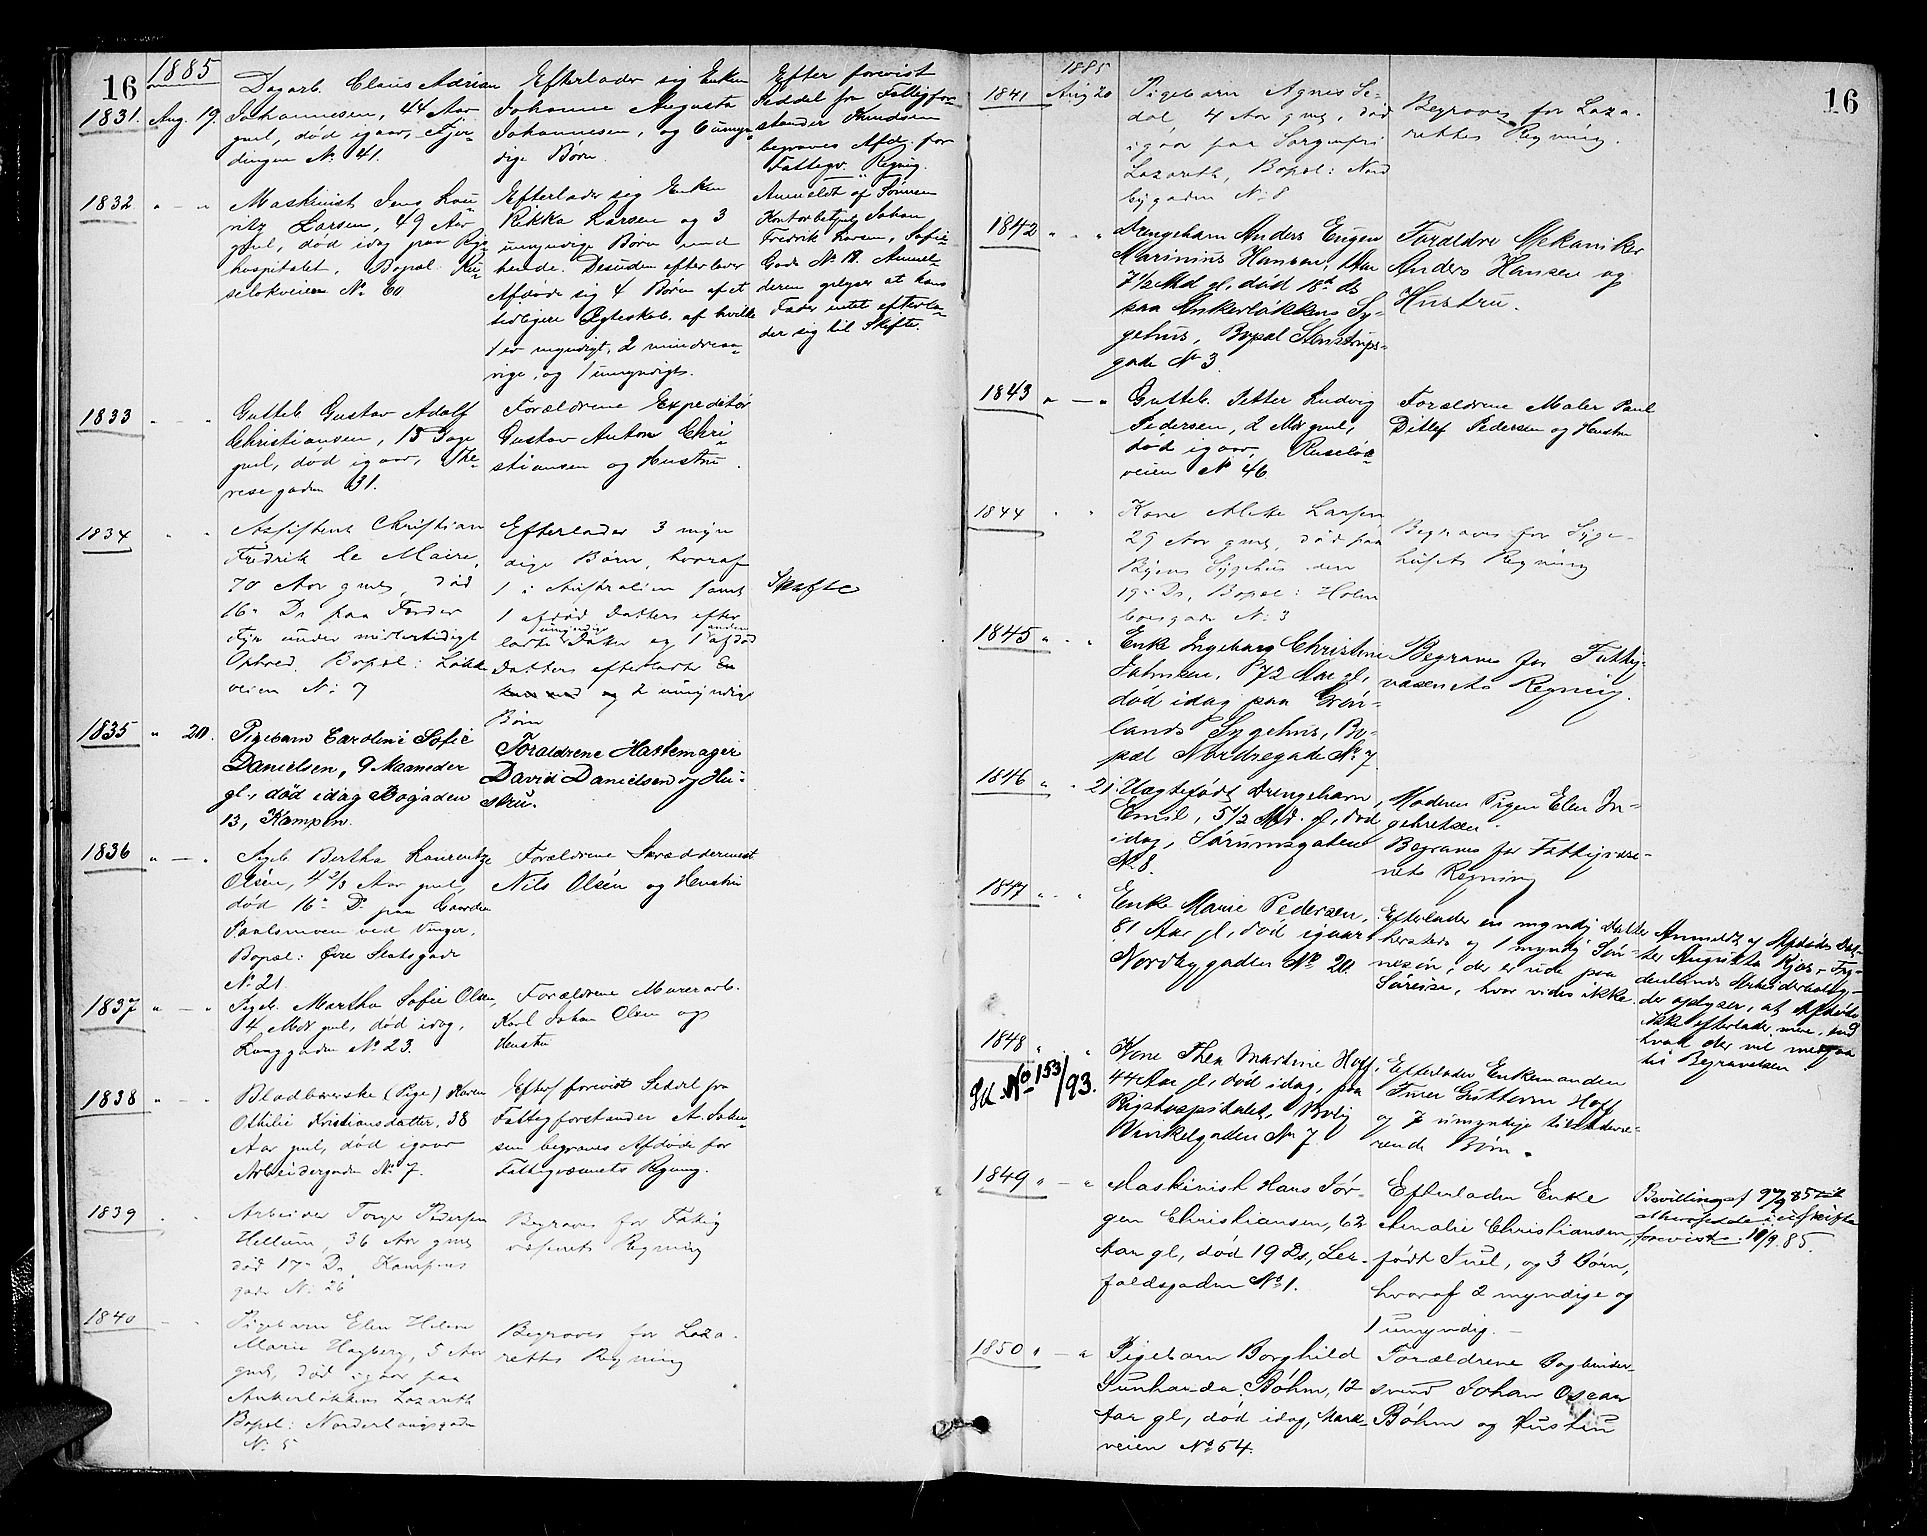 16
1885
1831. Aug. 19.
Dagarb. Claus Adrian
Johannesen, 44 Aar
gml, død igaar, Tjer-
dingen No. 41.
Efterlader sig Enken
Johanne Augusta
Johannesen, og 6 umyn-
dige Børn.
Efter forevist
Seddel fra Fattigfor-
stander Knudsen
begraves Afdø. for
Fattigv. Regnig.
1832 " - "
Maskinist Jens Lau-
ritz Larsen, 49 Aar
gml, død idag paa Rigs-
hospitalet, Bopæl Ru-
seløkveien No. 60
Efterlader sig Enken
Rikka Larsen og 3
umyndige Børn med
hende. Desuden efterlever
Afdøde sig 4 Børn af et
tidligere Ægteskab, af hvilke
1 er myndigt, 2 mindreaa-
rige, og 1 umyndigt.
Anmeldt af Sønnen
Kontorbetjent Johan
Fredrik Larsen, Sofies
Gade No. 18. Anmel-
deren oplyser at hans
Fader intet efterla-
der sig til Skifte.
1833 " - "
Gutteb. Gustav Adolf
Christiansen, 15 Dage
gml, død igaar, The-
resegaden 31.
Forældrene Expeditør
Gustav Anton Chri-
stiansen og Hustru.
1834 " "
Assistent Christian
Fredrik le Maire,
70 Aar gml, død
16de Ds paa Færder
Fyr under midlertidigt
Ophold. Bopæl: Løkke
veien No: 7
Efterlader 3 myn
dige Børn, hvoraf
1 i Australien samt
1 afdød Datters efter
ladte umyndige Datter og 1 anden afdød
Datters efterladte
og 2 umyndige
Børn
Skifte
1835 " 20.
Pigebarn Caroline Sofie
Danielsen, 9 Maaneder
gl., død idag Bogaden
13, Kampen.
Forældrene Hattemager
David Danielsen og Hu-
stru.
1836 " - "
Pigeb. Bertha Laurentze
Olsen, 4 2/3 Aar gml,
død 16de D. paa Gaarden
Paulsmoen ved Vinger,
Bopæl: Øvre Slotsgade
No. 21.
Forældrene Skræddermest.
Nils Olsén og Hustru
1837 " - "
Pigeb. Martha Sofie Olsen
4 Mdr gml, død idag,
Langgaden No. 23.
Forældrene Murerarb.
Karl Johan Olsen og
Hustru
1838 " - "
Blødbærerske (Pige) Karen
Othilie Kristiansdatter, 38
Aar gml, død igaar
Arbeidergaden No. 7.
Efter forevist Seddel fra
Fattigforstander A. Johan-
sen begraves Afdøde for
Fattigvæsenets Regning.
1839 " "
Arbeider Torger Pedersen
Hellum, 36 Aar gml
død 17de Ds, Kampens
gade No: 26
Begraves for Fattig
væsenets Regning
1840 - "
Pigebarn Elen Helene
Marie Hagberg, 5 Aar
gml, død igaar paa
Ankerløkkens Lazareth
Bopæl: Norderhovsgade
No: 5
Begraves for Laza-
rettes Regning
16
1885
1841 Aug 20
Pigebarn Agnes Se-
dal, 4 Aar gml, død
igaar paa Sorgenfri
Lazareth, Bopæl: Nord
bygaden No: 8
Begraves for Laza-
rettes Regning.
1842 " " "
Drengebarn Anders Eugen
Marinius Hansen, 1 Aar
7 1/2 Md gl, død 18de ds
paa Ankerløkkens Sy-
gehus, Bopæl Stenstrups-
gade No 3.
Forældre Mekaniker
Anders Hansen og
Hustru.
1843 " - "
Gutteb. Petter Ludvig
Pedersen, 2 Mdr gml,
død igaar, Ruseløk-
veien No 46.
Forældrene Maler Paul
Ditlef Pedersen og Hustru
1844 " "
Kone Mette Larsen
29 Aar gml, død paa
Byens Sygehus den
19de Ds, Bopæl: Holm
boesgade No: 3
Begraves for Syge-
husets Regning
1845 " " "
Enke Ingeborg Christine
Johnsen, 72 Aar gl,
død idag paa Grøn-
lands Sygehus, Bo-
pæl Nordregade No 7
Begraves for Fattig-
væsenets Regning.
1846 " 21
Uægtefødt Drengebarn,
Emil, 5 1/2 Md. gl, død
idag, Sørumsgaden
No. 8.
Moderen Pigen Elen In-
gebretsen.
Begraves for Fattigvæse-
nets Regning
1847 " " "
Enke Marie Pedersen,
81 Aar gl, død igaar
Nordbygaden No 20.
Efterlader en myndig Datter
hersteds og 1 myndig Søn-
nesøn, der er ude paa
Søreise, hvor vides ikke.
Anmeldt af Afdødes Dat-
ter Augusta Kjær Try-
denlunds Arbeiderbolig-
der oplyser, at Afdøde
ikke efterlader mere, end
hvad der vil medgaa
til Begravelsen.
1848 " "
Sd. No 153/93.
Kone Thea Martine Hoff,
44 Aar gl, død idag, paa
Rigshospitalet, Bolig
Vinkelgaden No 7
Efterlader Enkemanden
Furer Guttorm Hoff
og 7 umyndige tilstedevæ-
rende Børn.
1849 " - "
Maskinist Hans Jør-
gen Christiansen, 62
Aar gl, død 19 Ds, Ler-
foldsgaden No. 1.
Efterlader Enke
Amalie Christiansen,
født Juel, og 3 Børn,
hvoraf 2 myndige og
1 umyndig. -
Bevilling af 9/9 85 til
at hensidde i uskiftet
forevist 10/9. 85.
1850 " - "
Pigebarn Borghild
Sunhanda Bøhm, 12
Aar gl, død idag, Mark-
veien No. 54.
Forældrene Bogbinder-
svend Johan Oscar
Bøhm og Hustru